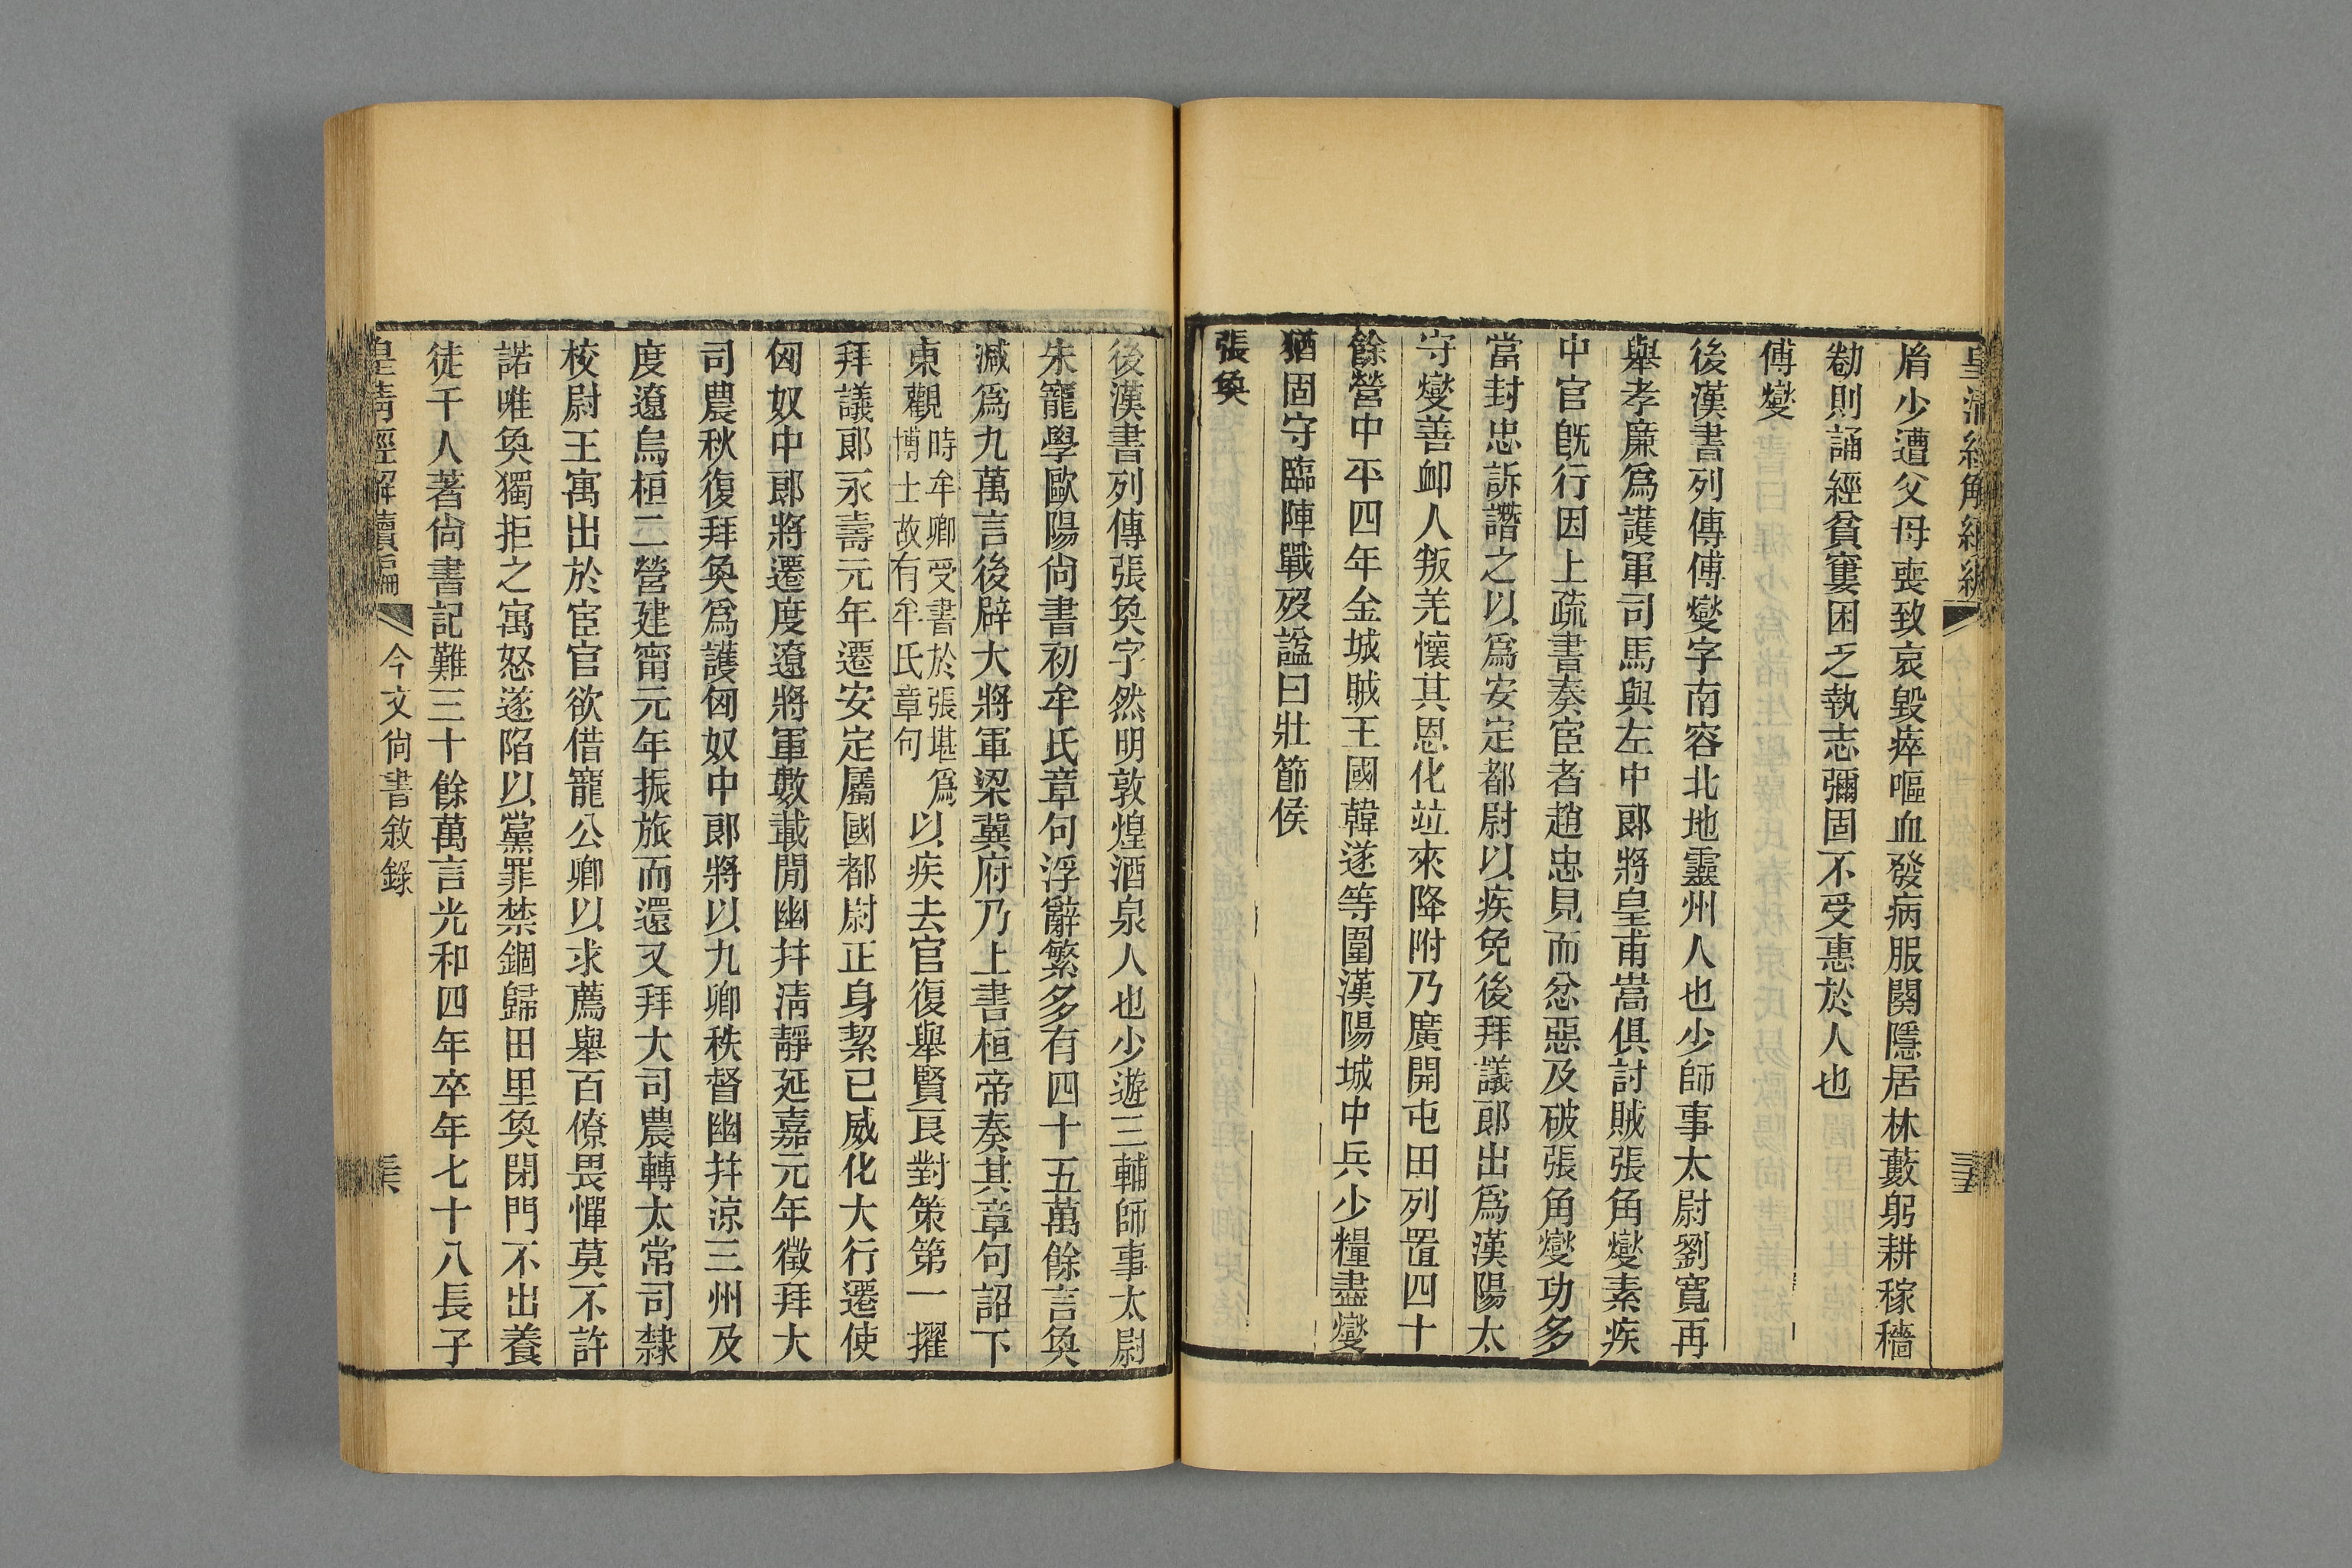 皇清經解續編
肩少遭父母喪致哀毀瘁嘔血發病服闋隱居林藪躬耕稼穡
勌則誦經貧窶困乏執志彌固不受惠於人也
傅燮
後漢書列傳傅燮字南容北地靈州人也少師事太尉劉寬再
舉孝廉爲護軍司馬與左中郎將皇甫嵩俱討賊張角燮素疾
中官旣行因上疏書奏宦者趙忠見而忿惡及破張角燮功多
當封忠訴譖之以爲安定都尉以疾免後拜議郎出爲漢陽太
守燮善卹人叛羌懷其恩化竝來降附乃廣開屯田列置四十
餘營中平四年金城賊王國韓遂等圍漢陽城中兵少糧盡燮
猶固守臨陣戰歿諡曰壯節侯
張奐
後漢書列傳張奐字然明敦煌酒泉人也少遊三輔師事太尉
朱寵學歐陽尙書初牟氏章句浮辭繁多有四十五萬餘言奐
減爲九萬言後辟大將軍梁冀府乃上書桓帝奏其章句詔下
東觀時牟卿受書於張堪爲博士故有牟氏章句以疾去官復舉賢良對策第一擢
拜議郎永壽元年遷安定屬國都尉正身絜已威化大行遷使
匈奴中郎將遷度遼將軍數載閒幽幷淸靜延嘉元年徵拜大
司農秋復拜奐爲護匈奴中郎將以九卿秩督幽幷涼三州及
度遼烏桓二營建甯元年振旅而還又拜大司農轉太常司隸
校尉王寓出於宦官欲借寵公卿以求薦舉百僚畏憚莫不許
諾唯奐獨拒之寓怒遂陷以黨罪禁錮歸田里奐閉門不出養
徒千人著尙書記難三十餘萬言光和四年卒年七十八長子
皇淸經解續編 今文尙書敘錄